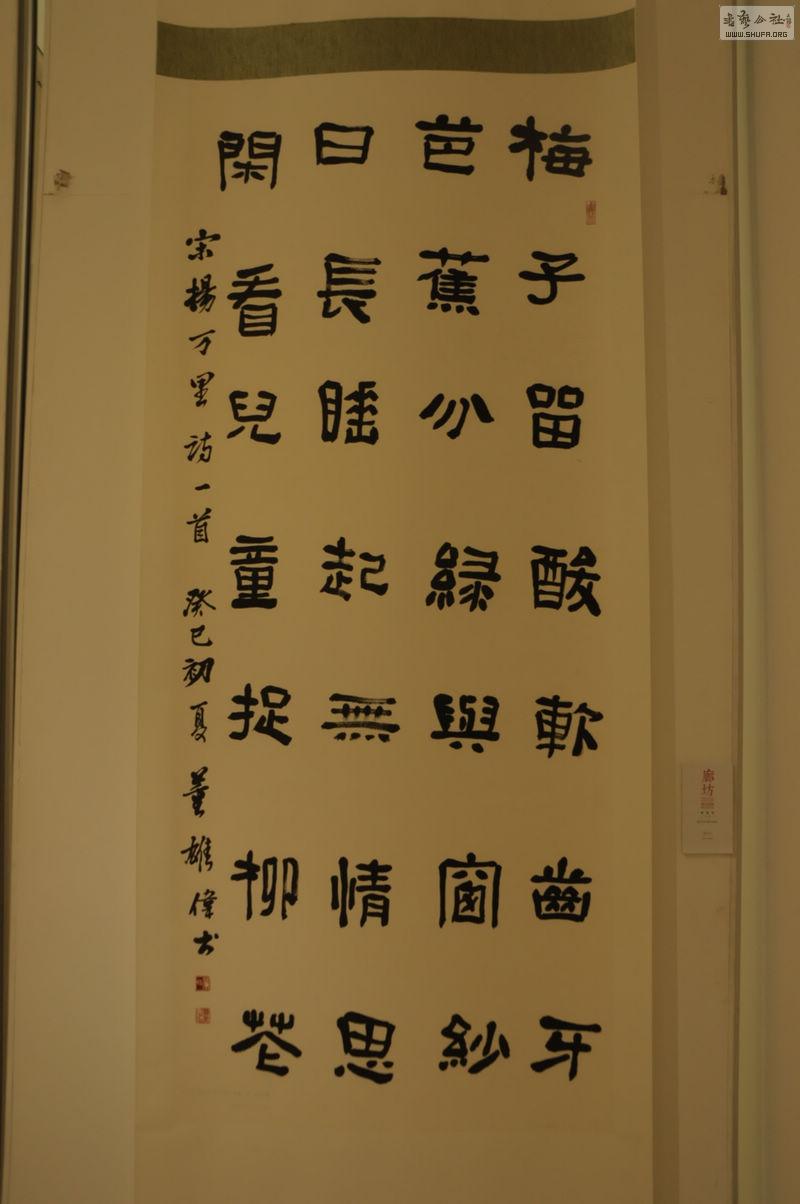 梅子留酸軟齒牙
芭蕉分綠與窗紗
日長睡起無情思
閑看兒童捉柳花
宋楊万里诗一首 癸巳初夏 董雄偉书
廊坊
书艺公社
WWW.SHUFA.ORG